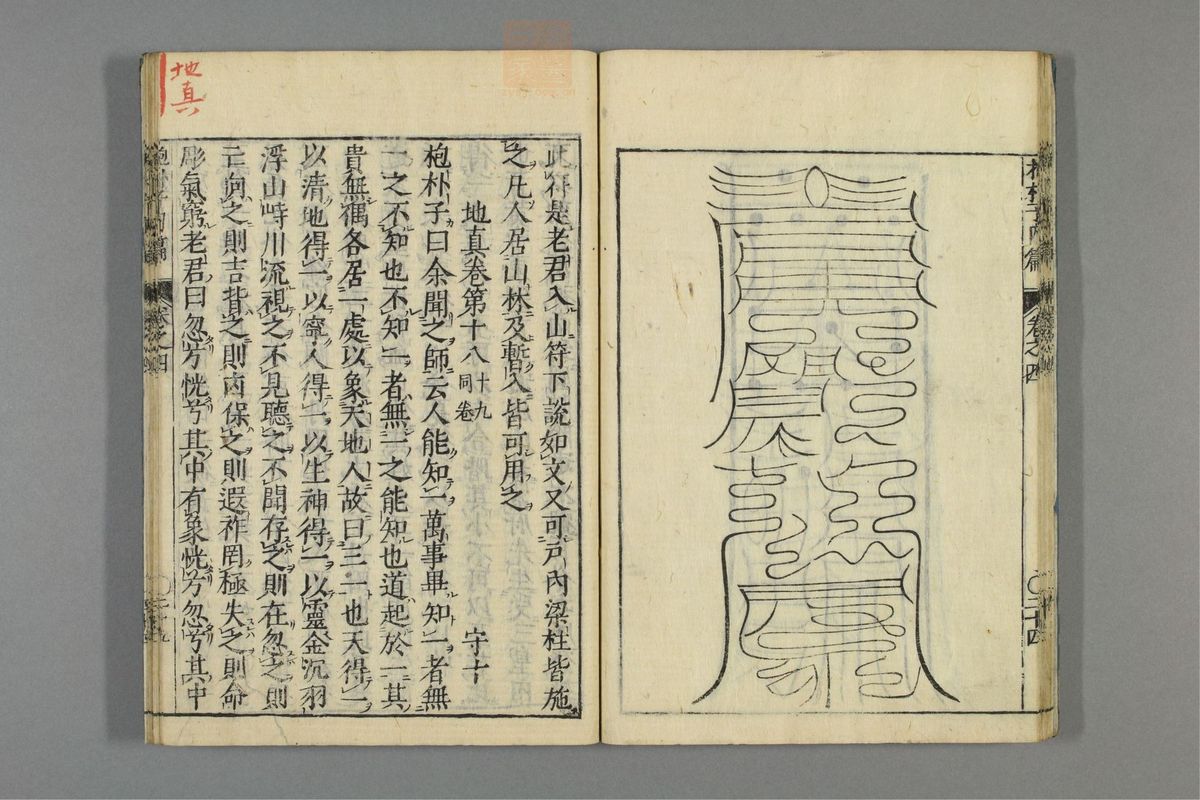 抱朴子內篇
卷之四
二十四
此符是老君入山符下說如文又可戸內梁柱皆施
之凡人居山林及暫入皆可用之
地真卷第十八 十九同卷 守十
抱朴子曰余聞之師云人能知一萬事畢知一者無
一之不知也不知一者無一之能知也道起於一其
貴無偶各居一處以象天地人故曰三一也天得一
以清地得一以寧人得一以生神得一以靈金沉羽
浮山峙川流視之不見聽之不聞存之則在忽之則
亡向之則吉背之則凶保之則遐祚罔極失之則命
彫氣窮老君曰忽兮恍兮其中有象恍兮忽兮其中
地真